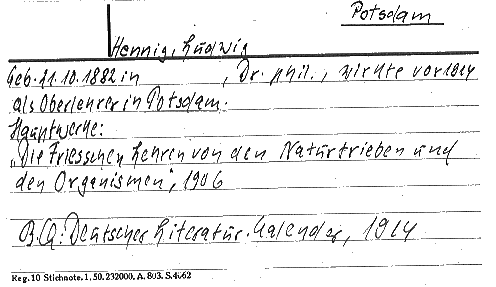 Potsdam
Hennig, Ludwig
Geb. 21.10.1882 in , Dr. phil., wirkte vor 1914
als Oberlehrer in Potsdam.
Hauptwerke:
„Die Friesschen Lehren von den Naturtrieben und
den Organismen", 1906
B.Q: Deutscher Literatur-Kalender, 1914
Reg. 10 Stichnote. 1, 50. 232000. A. 803. S. 4662